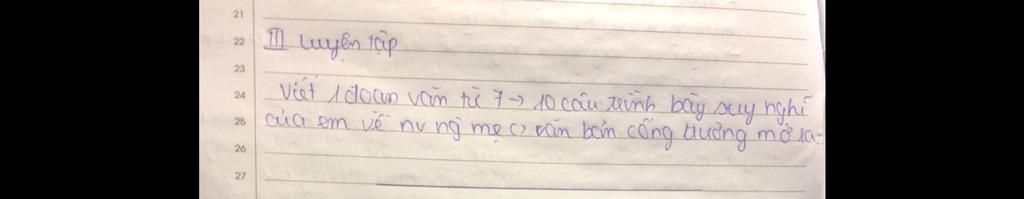 21
22 III Luyện tập
23
24 Viết 1 đoạn văn từ 7 → 10 câu trình bày suy nghĩ
25 của em về nv ng mẹ <> văn bản cổng trường mở ra.
26
27